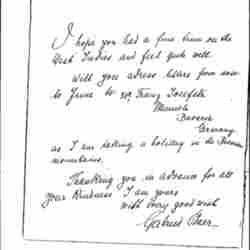 I hope you had a fine time on the
West Indies and feel quite well
Will you adress letters from now
to June to Franz Josefstr
Munich
Bavaria
Germany
as I am taking a holiday in the
mountains.
Thanking you in advance for all
your kindness I am yours
with very good wish